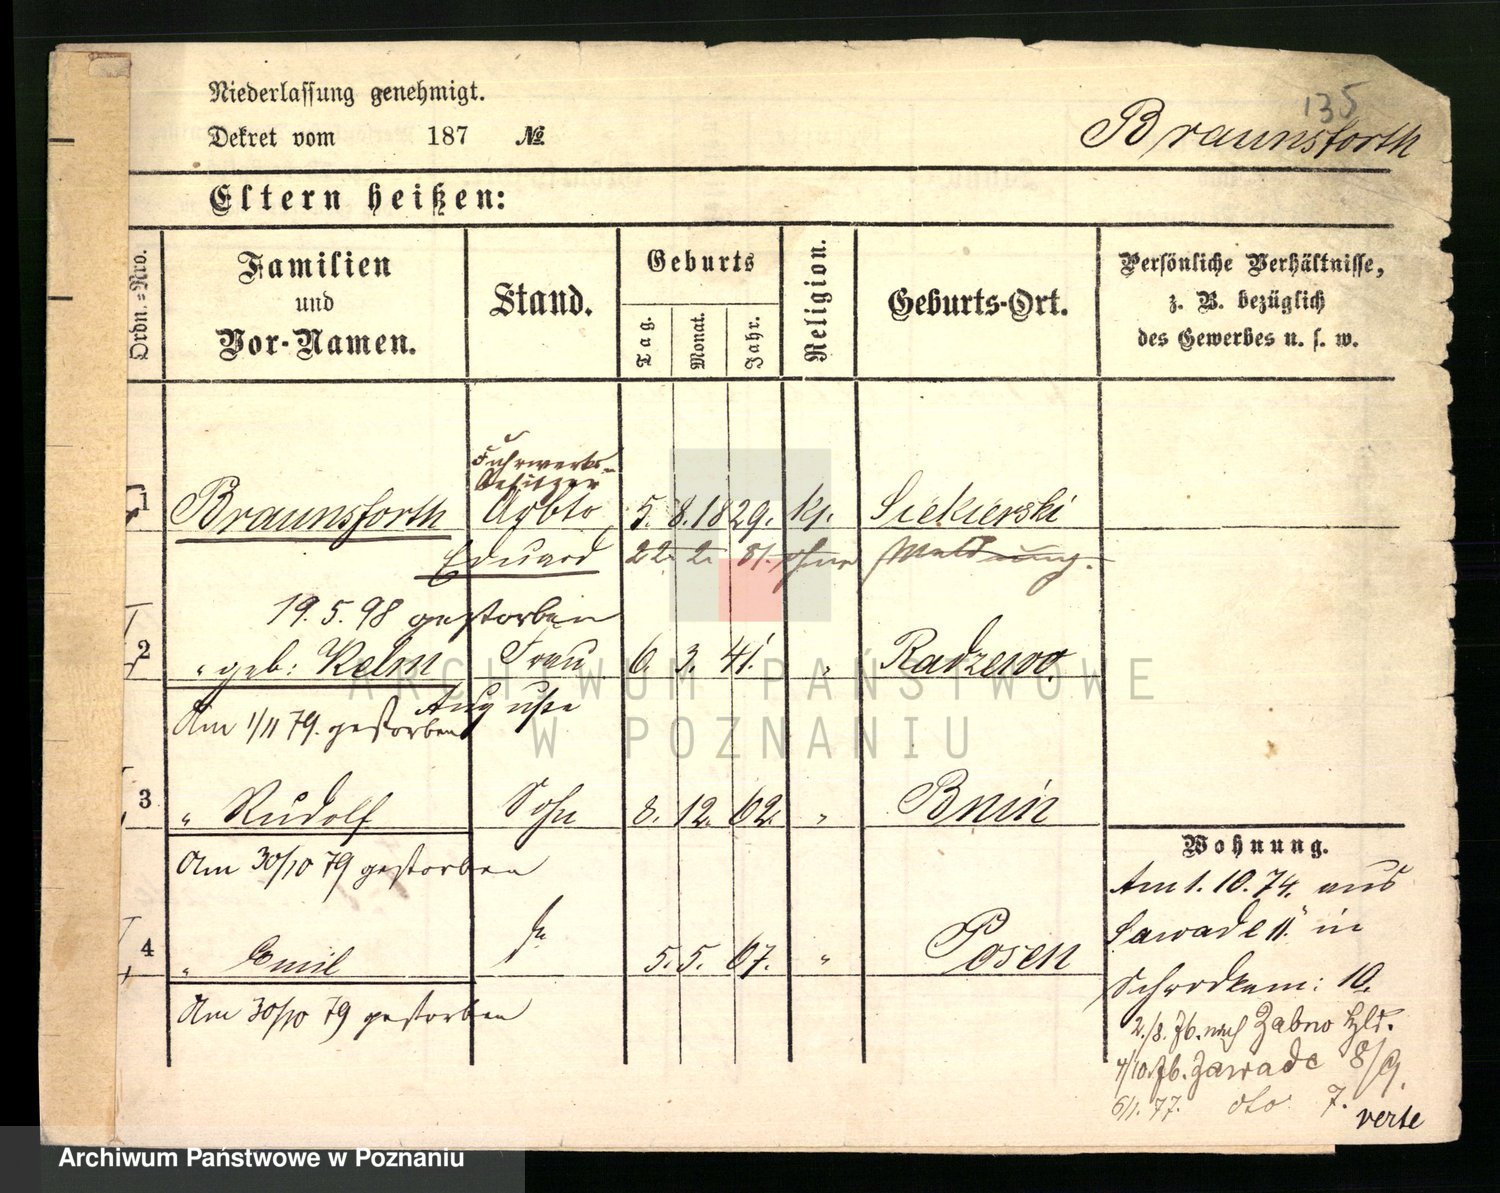 135
Niederlassung genehmigt.
Dekret vom 187 №
Braunsforth
Eltern heißen:
Ordn.=Nro.
Familien
und
Vor-Namen.
Stand.
Geburts
Tag.
Monat.
Jahr.
Religion.
Geburts-Ort.
Persönliche Verhältnisse,
z. B. bezüglich
des Gewerbes u. s. w.
Fuhrwerks-
Besitzer
1 Braunsforth Arbtr 5. 8. 1829. kj. Siekierski
Eduard 22. 2. 81. ohne Meldung.
19. 5. 98 gestorben
2 " geb: Kelm Frau 6. 3. 41. " Radzewo.
Auguste
Am 1/11 79. gestorben
3 " Rudolf Sohn 8. 12. 62. " Bnin
Am 30/10 79 gestorben
4 " Emil do 5. 5. 67. " Posen
Am 30/10 79 gestorben
Wohnung.
Am 1. 10. 74. aus
Zawade 11. in
Schrodkam: 10.
2./8. 76. nach Zabno Hld.
4/10. 76. Zawade 8/9.
6/1. 77. dto 7.
verte
ARCHIWUM PAŃSTWOWE
W POZNANIU
Archiwum Państwowe w Poznaniu